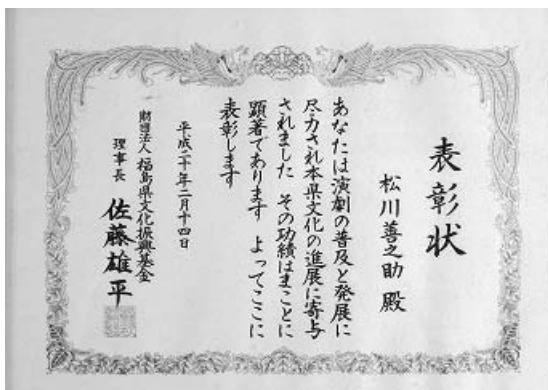 表彰状
松川善之助 殿
あなたは演劇の普及と発展に
尽力され本県文化の進展に寄与
されました その功績はまことに
顕著であります よってここに
表彰します
平成二十年二月十四日
財団法人 福島県文化振興基金
理事長 佐藤雄平